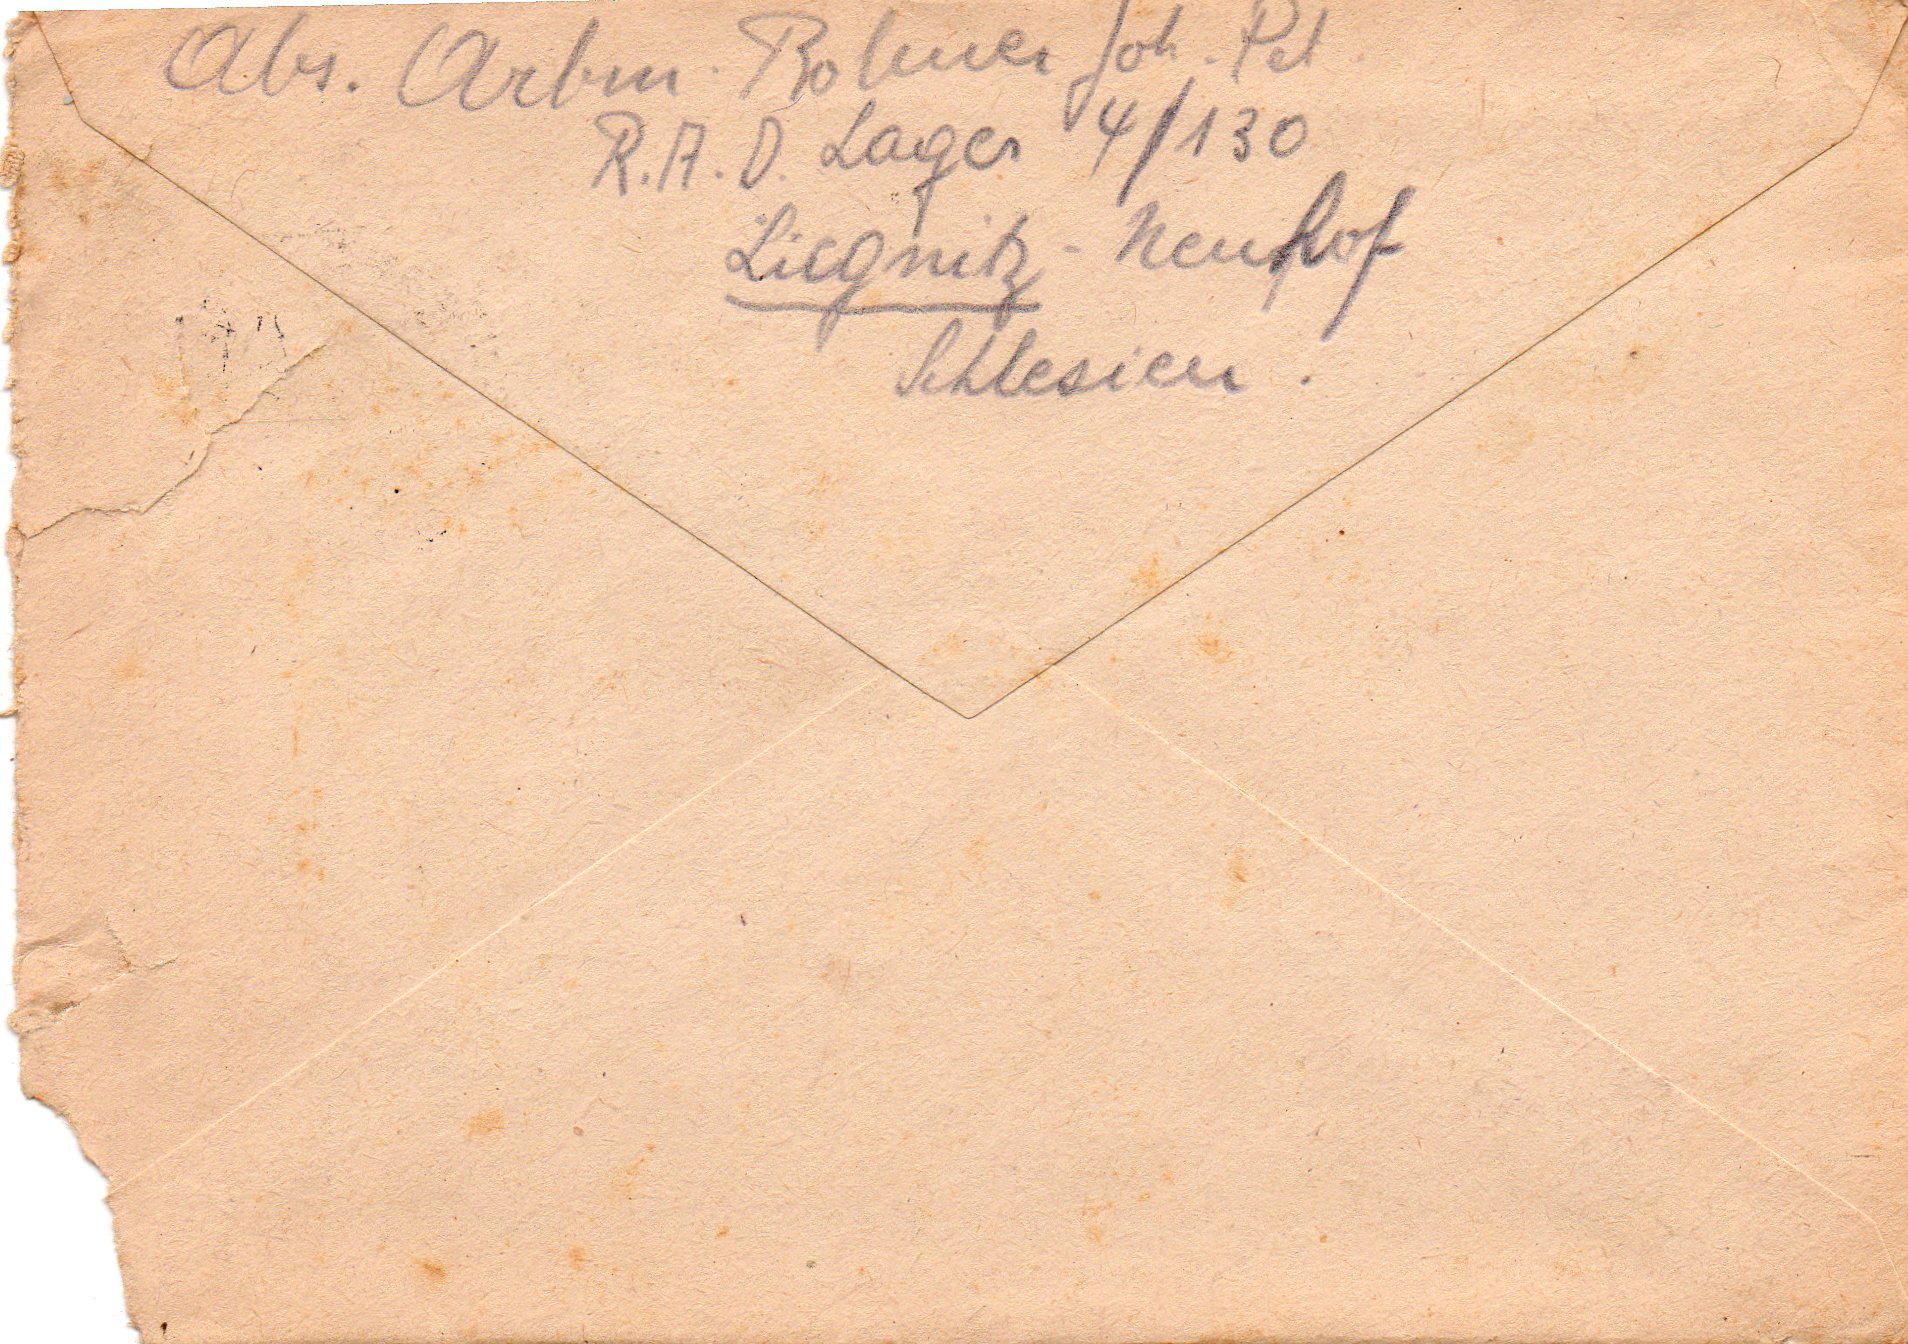 Abs. Arbm. Bohner Joh. Pet.
R.A.D. Lager 4/130
Liegnitz - Neuhof
Schlesien.